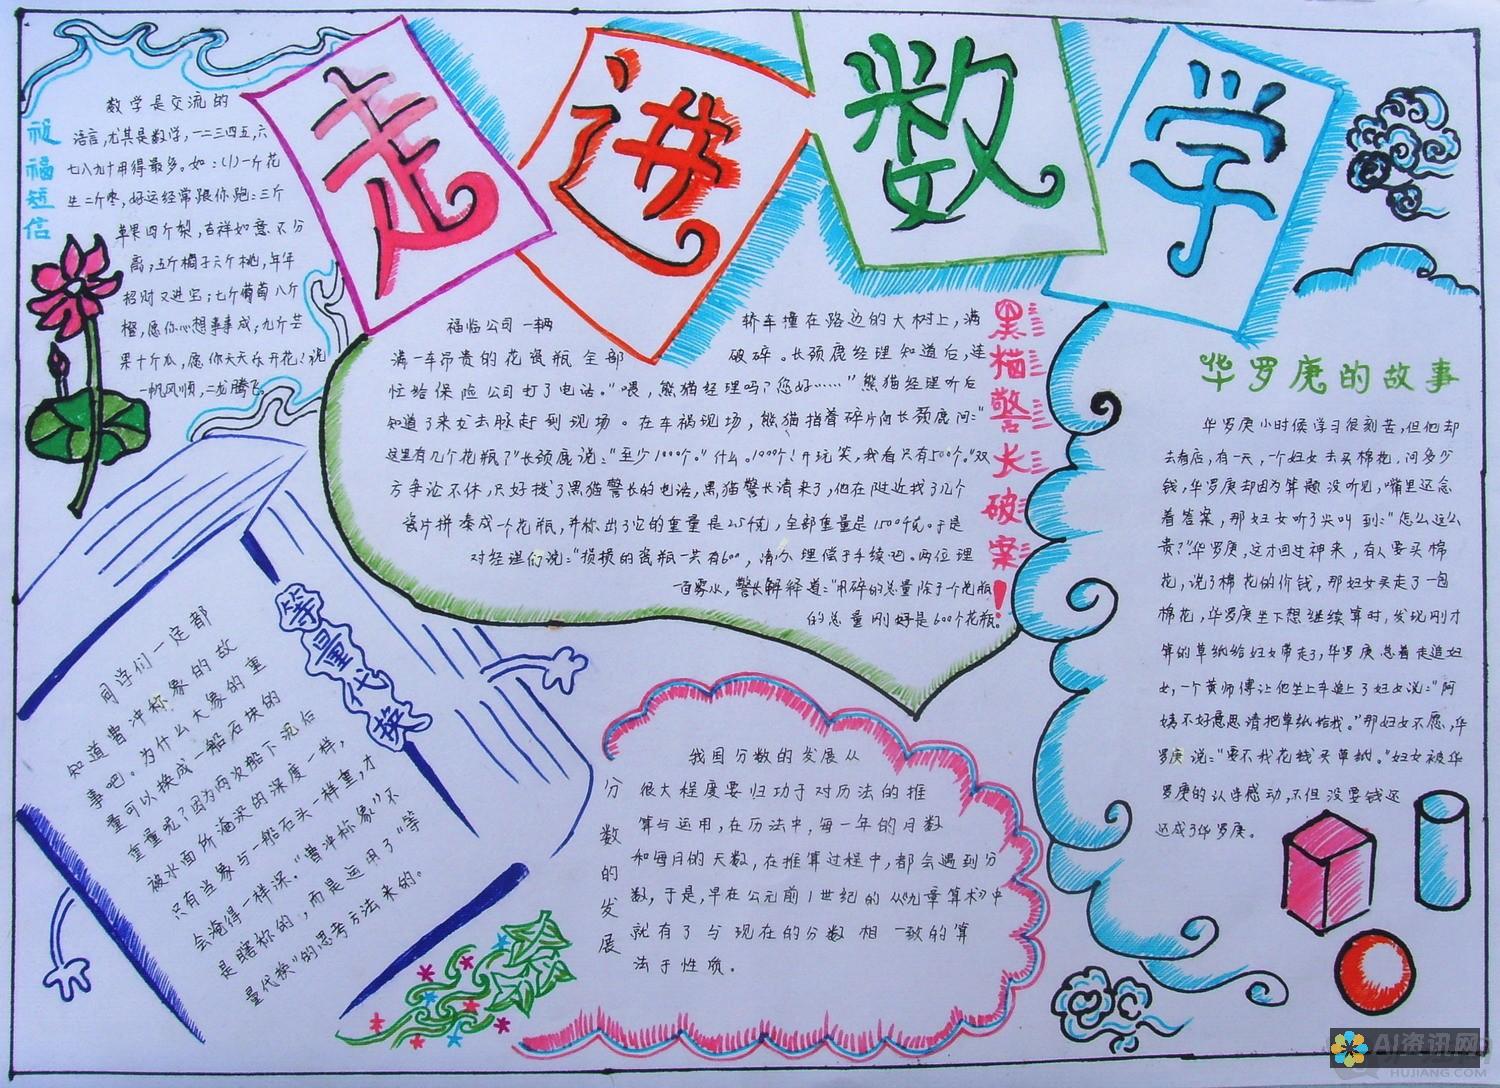 走进数学
祝福短信
数学是交流的
语言,尤其是数学,一二三四五,六
七八九十用得最多。如:(1)一斤花
生二斤枣,好运经常跟你跑;三斤
苹果四斤梨,吉祥如意不分
离;五斤橘子六个桃,年年
招财又进宝;七斤葡萄八斤
橙,愿你心想事事成;九斤芒
果十斤瓜,愿你天天乐开花!说
一帆风顺,二龙腾飞。
黑猫警长破案!
福临公司一辆
轿车撞在路边的大树上,满
满一车昂贵的花瓷瓶全部
破碎。长颈鹿经理知道后,连
忙给保险公司打了电话。“喂,熊猫经理吗?您好……”熊猫经理听后
知道了来龙去脉赶到现场。在车祸现场,熊猫指着碎片问长颈鹿问:“
这里有几个花瓶?”长颈鹿说:“至少1000个。”什么。1000个!开玩笑,我看只有500个。”双
方争论不休,只好找了黑猫警长的电话,黑猫警长请来了,他在附近找了几个
瓷片拼凑成一个花瓶,并称出了它的重量是2.5千克,全部重量是1500千克。于是
对经理们说:“损换的瓷瓶一共有600,请办理偿于手续吧。两位理
一百雾水,警长解释道:“用碎的总量除于一个花瓶
的总量刚好是600个花瓶。
华罗庚的故事
华罗庚小时候学习很刻苦,但他却
去看店,有一天,一个妇女去买棉花,问多少
钱,华罗庚却因为算题没听见,嘴里还念
着答案,那妇女听了尖叫到:“怎么这么
贵?”华罗庚,这才回过神来,有人要买棉
花,说了棉花的价钱,那妇女买走了一包
棉花,华罗庚坐下想继续算时,发现刚才
算的草纸给妇女带走了,华罗庚急着走追妇
女,一个黄师傅让他坐上车追上了妇女说:“阿
姨不好意思请把草纸给我。”那妇女不愿,华
罗庚说:“要不我花钱买草纸。”妇女被华
罗庚的认学感动,不但没要钱还
还成了华罗庚。
等量代换
同学们一定都
知道曹冲称象的故
事吧。为什么大象的重
量可以换成一船石块的
重量呢?因为两次船下沉后
被水面所淹没的深度一样,
只有当象与一船石头一样重,才
会淹得一样深。“曹冲称象”不
是瞎称的,而是运用了“等
量代换”的思考方法来的。
分数的发展
我国分数的发展从
很大程度要归功于对历法的推
算与运用,在历法中,每一年的月数
和每月的天数,在推算过程中,都会遇到分
数,于是,早在公元前1世纪的从《九章算术》中
就有了与现在的分数相一致的算
法于性质。
AI资讯网
HUJIANG.COM